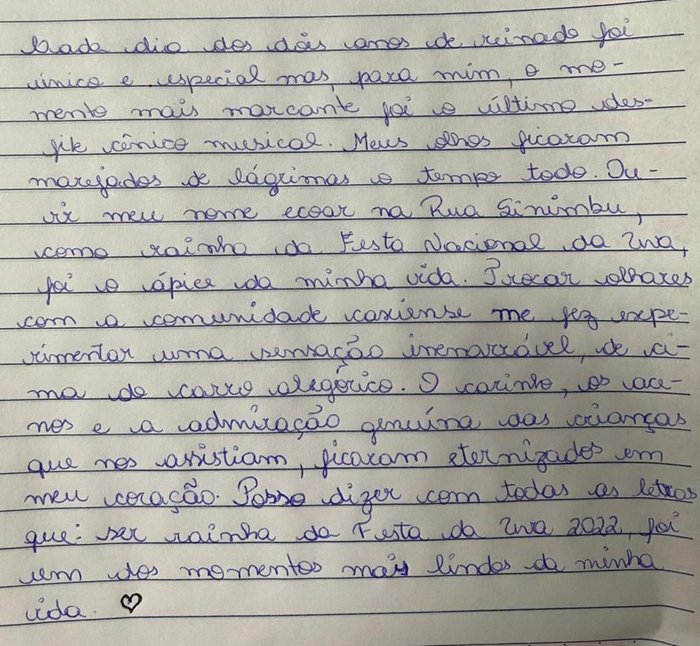 Cada dia dos dois anos de reinado foi
único e especial mas, para mim, o mo-
mento mais marcante foi o último des-
file cênico musical. Meus olhos ficaram
marejados de lágrimas o tempo todo. Ou-
vir meu nome ecoar na Rua Sinimbu,
como rainha da Festa Nacional da Uva,
foi o ápice da minha vida. Trocar olhares
com a comunidade caxiense me fez expe-
rimentar uma sensação inenarrável, de ci-
ma do carro alegórico. O carinho, os ace-
nos e a admiração genuína das crianças
que nos assistiam, ficaram eternizados em
meu coração. Posso dizer com todas as letras
que: ser rainha da Festa da Uva 2022, foi
um dos momentos mais lindos da minha
vida. ♡